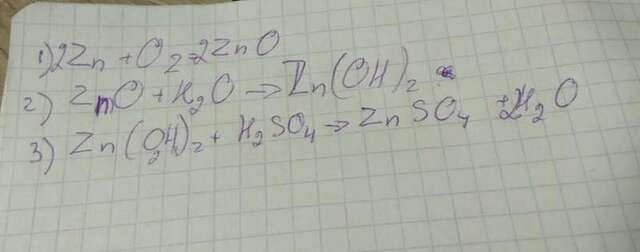 1) 2Zn + O₂ = 2ZnO
2) ZnO + H₂O → Zn(OH)₂
3) Zn(OH)₂ + H₂SO₄ → ZnSO₄ + 2H₂O